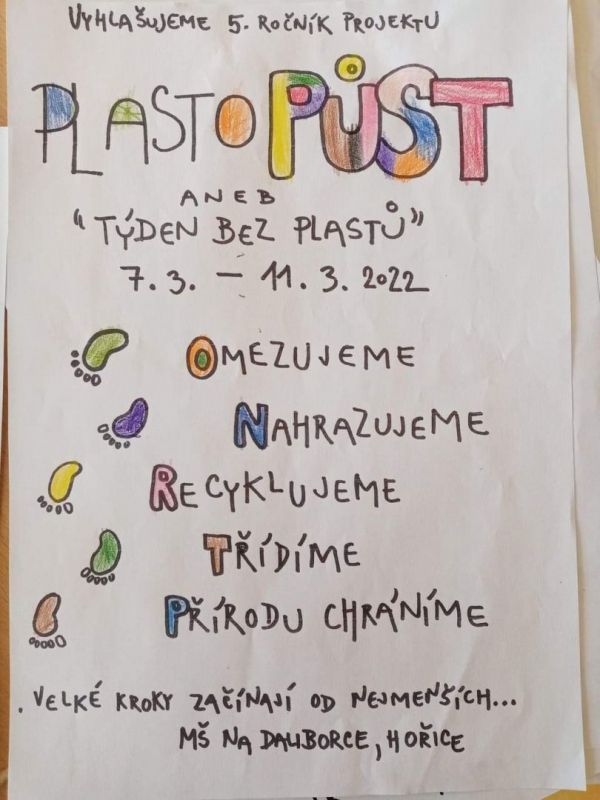 VYHLAŠUJEME 5. ROČNÍK PROJEKTU
PLASTOPŮST
ANEB
“TÝDEN BEZ PLASTŮ”
7. 3. – 11. 3. 2022
OMEZUJEME
NAHRAZUJEME
RECYKLUJEME
TŘÍDÍME
PŘÍRODU CHRÁNÍME
. VELKÉ KROKY ZAČÍNAJÍ OD NEJMENŠÍCH...
MŠ NA DALIBORCE, HOŘICE